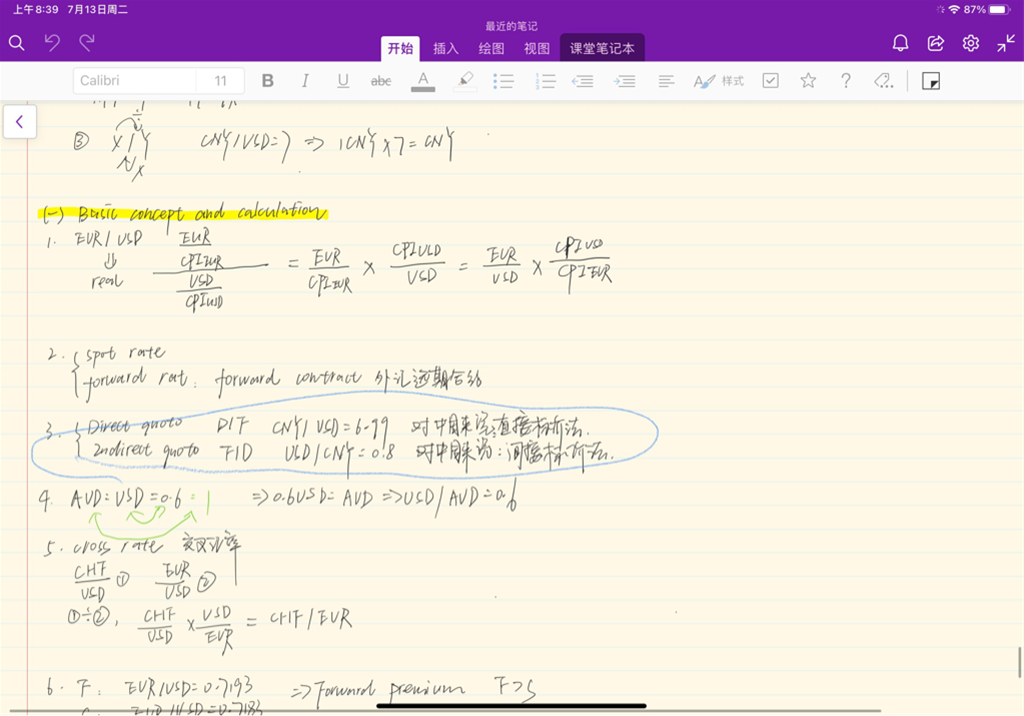 上午8:39 7月13日周二
87%
最近的笔记
开始 插入 绘图 视图 课堂笔记本
Calibri 11 B I U abc A 样式
③ X/Y CNY/USD=7 => 1CNY×7=CNY
/X
(一) Basic concept and calculation
1. EUR/USD EUR/CPIEUR / USD/CPIUSD = EUR/CPIEUR × CPIUSD/USD = EUR/USD × CPIUSD/CPIEUR
⇓
real
2. { spot rate
forward rat: forward contract 外汇远期合约
3. { Direct quoto D/F CNY/USD=6.99 对中国来说:直接标价法.
Indirect quoto F/D USD/CNY=0.8 对中国来说:间接标价法.
4. AUD:USD=0.6:1 =>0.6USD=AUD =>USD/AUD=0.6
5. cross rate 交叉汇率
CHF/USD ① EUR/USD ②
①÷②, CHF/USD × USD/EUR = CHF/EUR
6. F: EUR/USD=0.7193 => Forward premium F>S
EUR/USD=0.7183